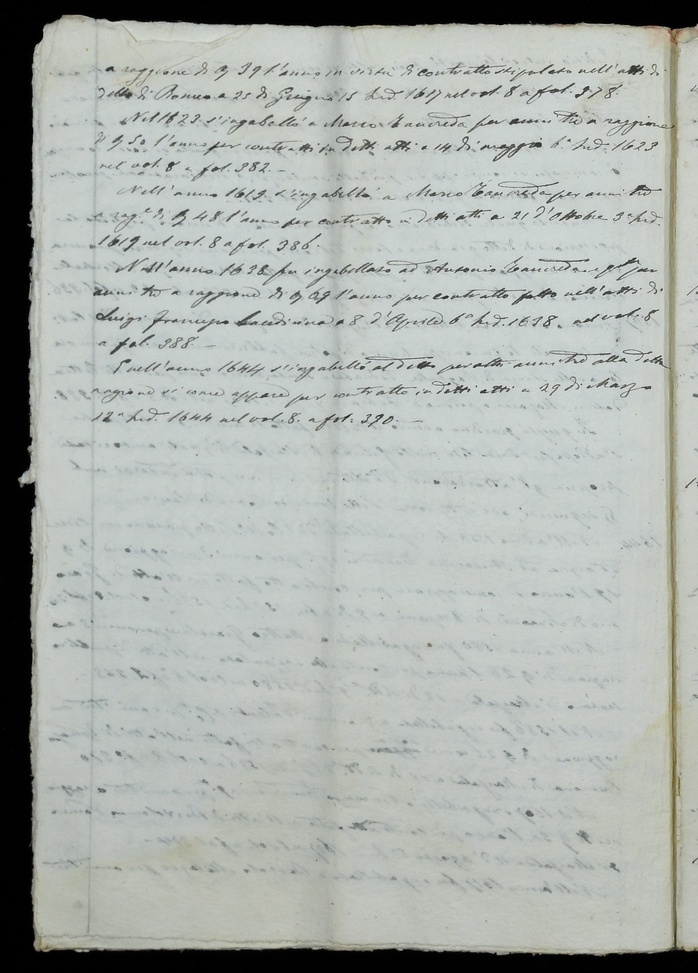 a raggione di 39 l'anno in virtù di contratto stipulato nell'atti di
detto di Romeo a 25 di Giugno 15 Ind. 1617 nel vol. 8 a fol. 378.
Nel 1623 s'ingabellò a Marco Tancreda per anni tre a raggione
di 50 l'anno per contratto in detti atti a 14 di maggio 6ª Ind. 1623
nel vol. 8 a fol. 382. —
Nell'anno 1619 s'ingabellò a Marco Tancreda per anni tre
a ragᵉ di 48 l'anno per contratto in detti atti a 21 d'Ottobre 3ª Ind.
1619 nel vol. 8 a fol. 386.
Nell'anno 1638 fu ingabellato ad Antonio Tancreda per
anni tre a raggione di 29 l'anno per contratto fatto nell'atti di
Luigi Francesco a 8 d'Aprile 6ª Ind. 1638. nel vol. 8
a fol. 388. —
E nell'anno 1644 s'ingabellò al detto per altri anni tre alla detta
ragione si come appare per contratto in detti atti a 29 di Marzo
12ª Ind. 1644 nel vol. 8. a fol. 390. —